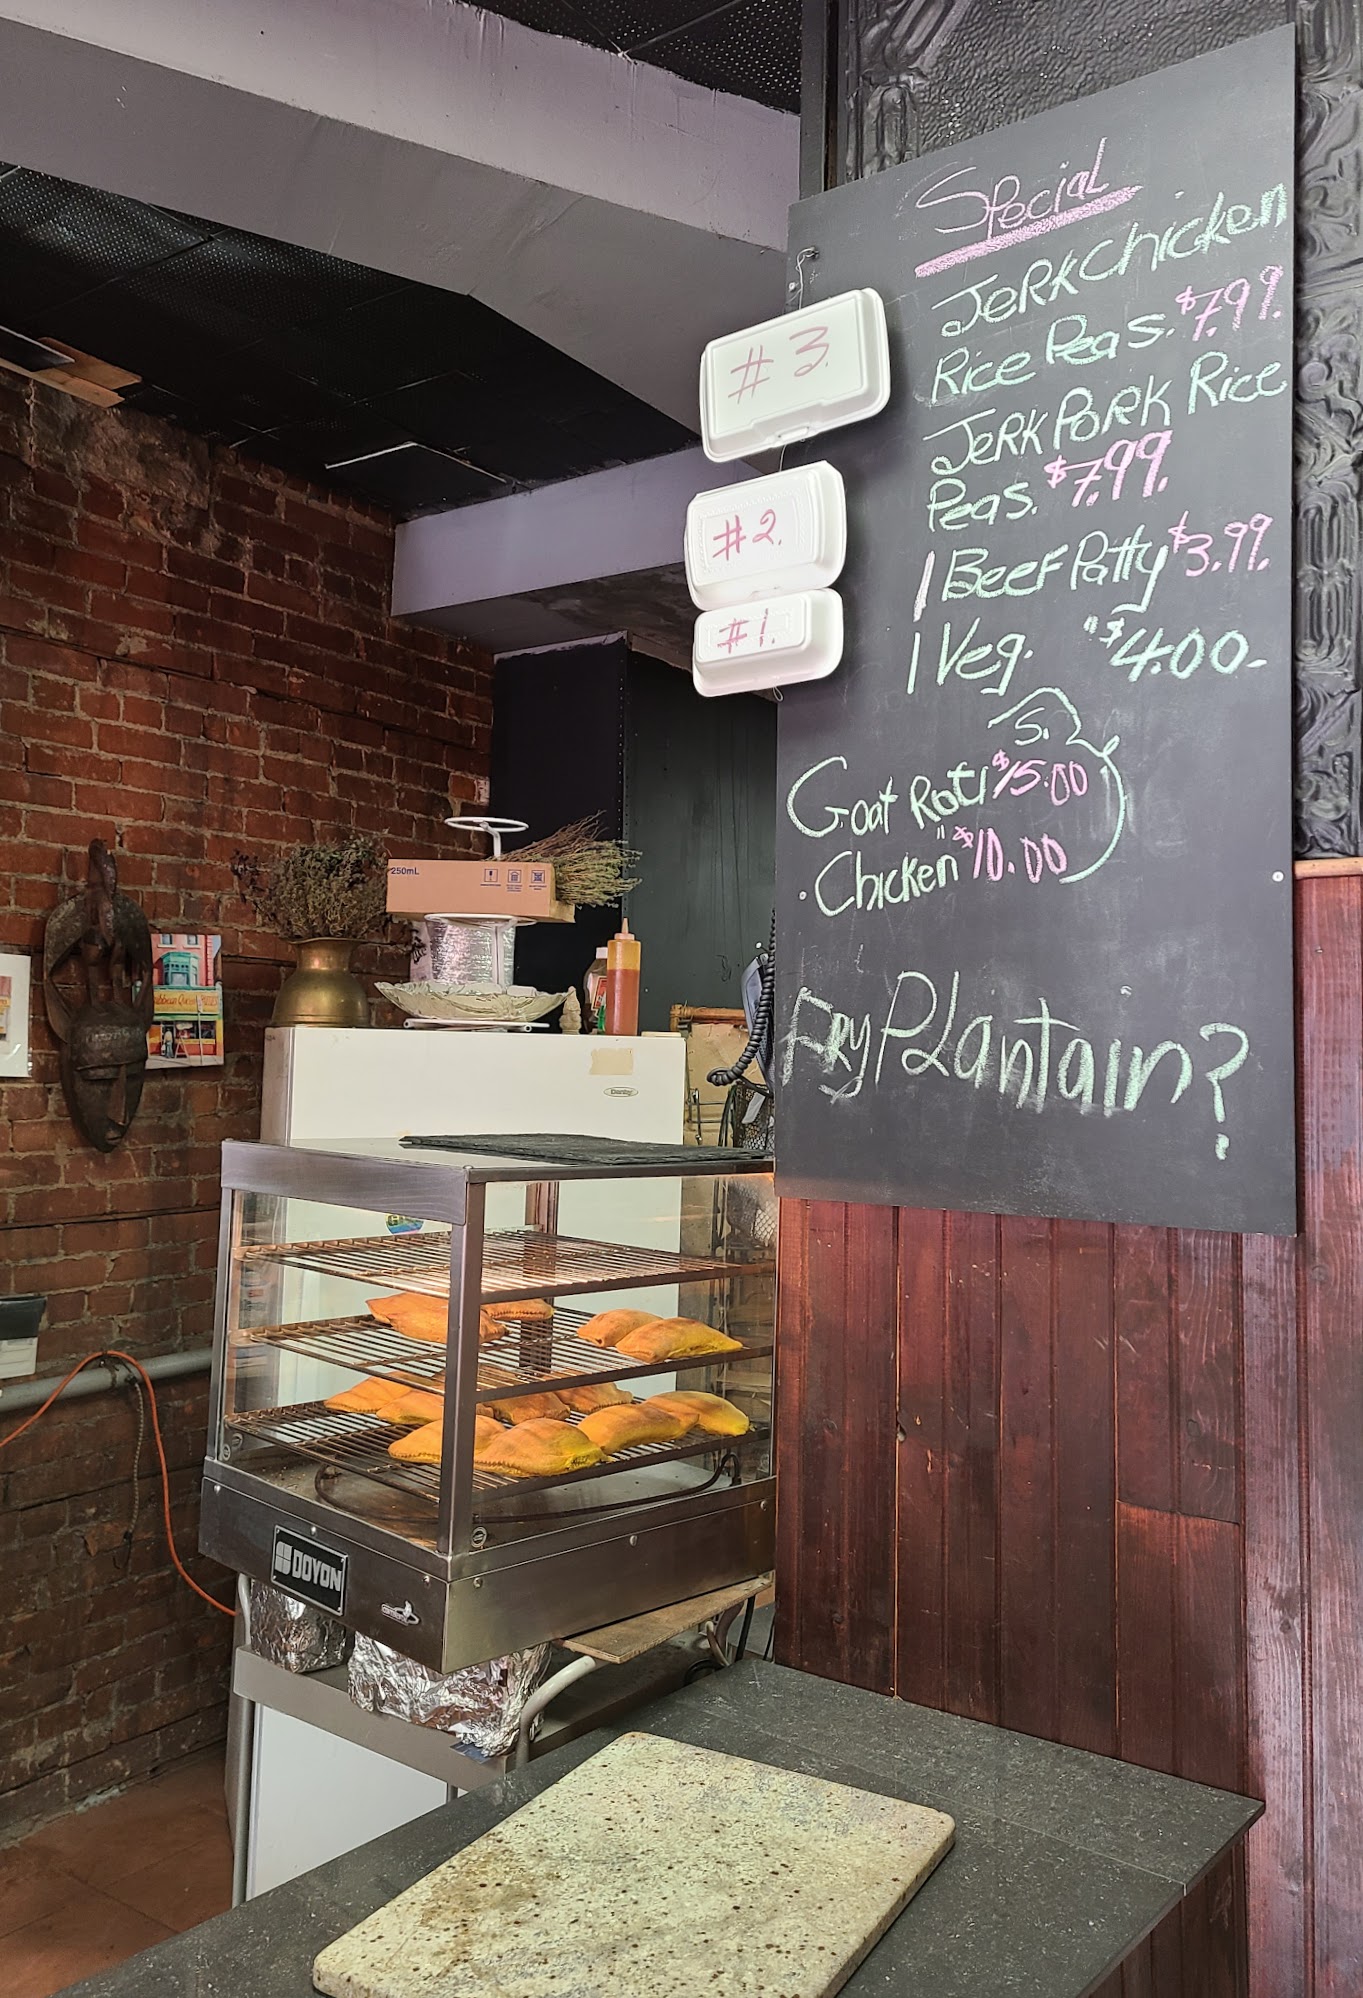 Special
JeRKChicken
Rice Peas. $7.99.
JeRK PORK Rice
Peas. $7.99.
1 BeeF Patty $3.99.
1 Veg. " $4.00-
5.
Goat Roti $15.00
. Chicken " $10.00
FRY PLantain?
# 3.
# 2.
# 1.
250mL
Danby
DOYON